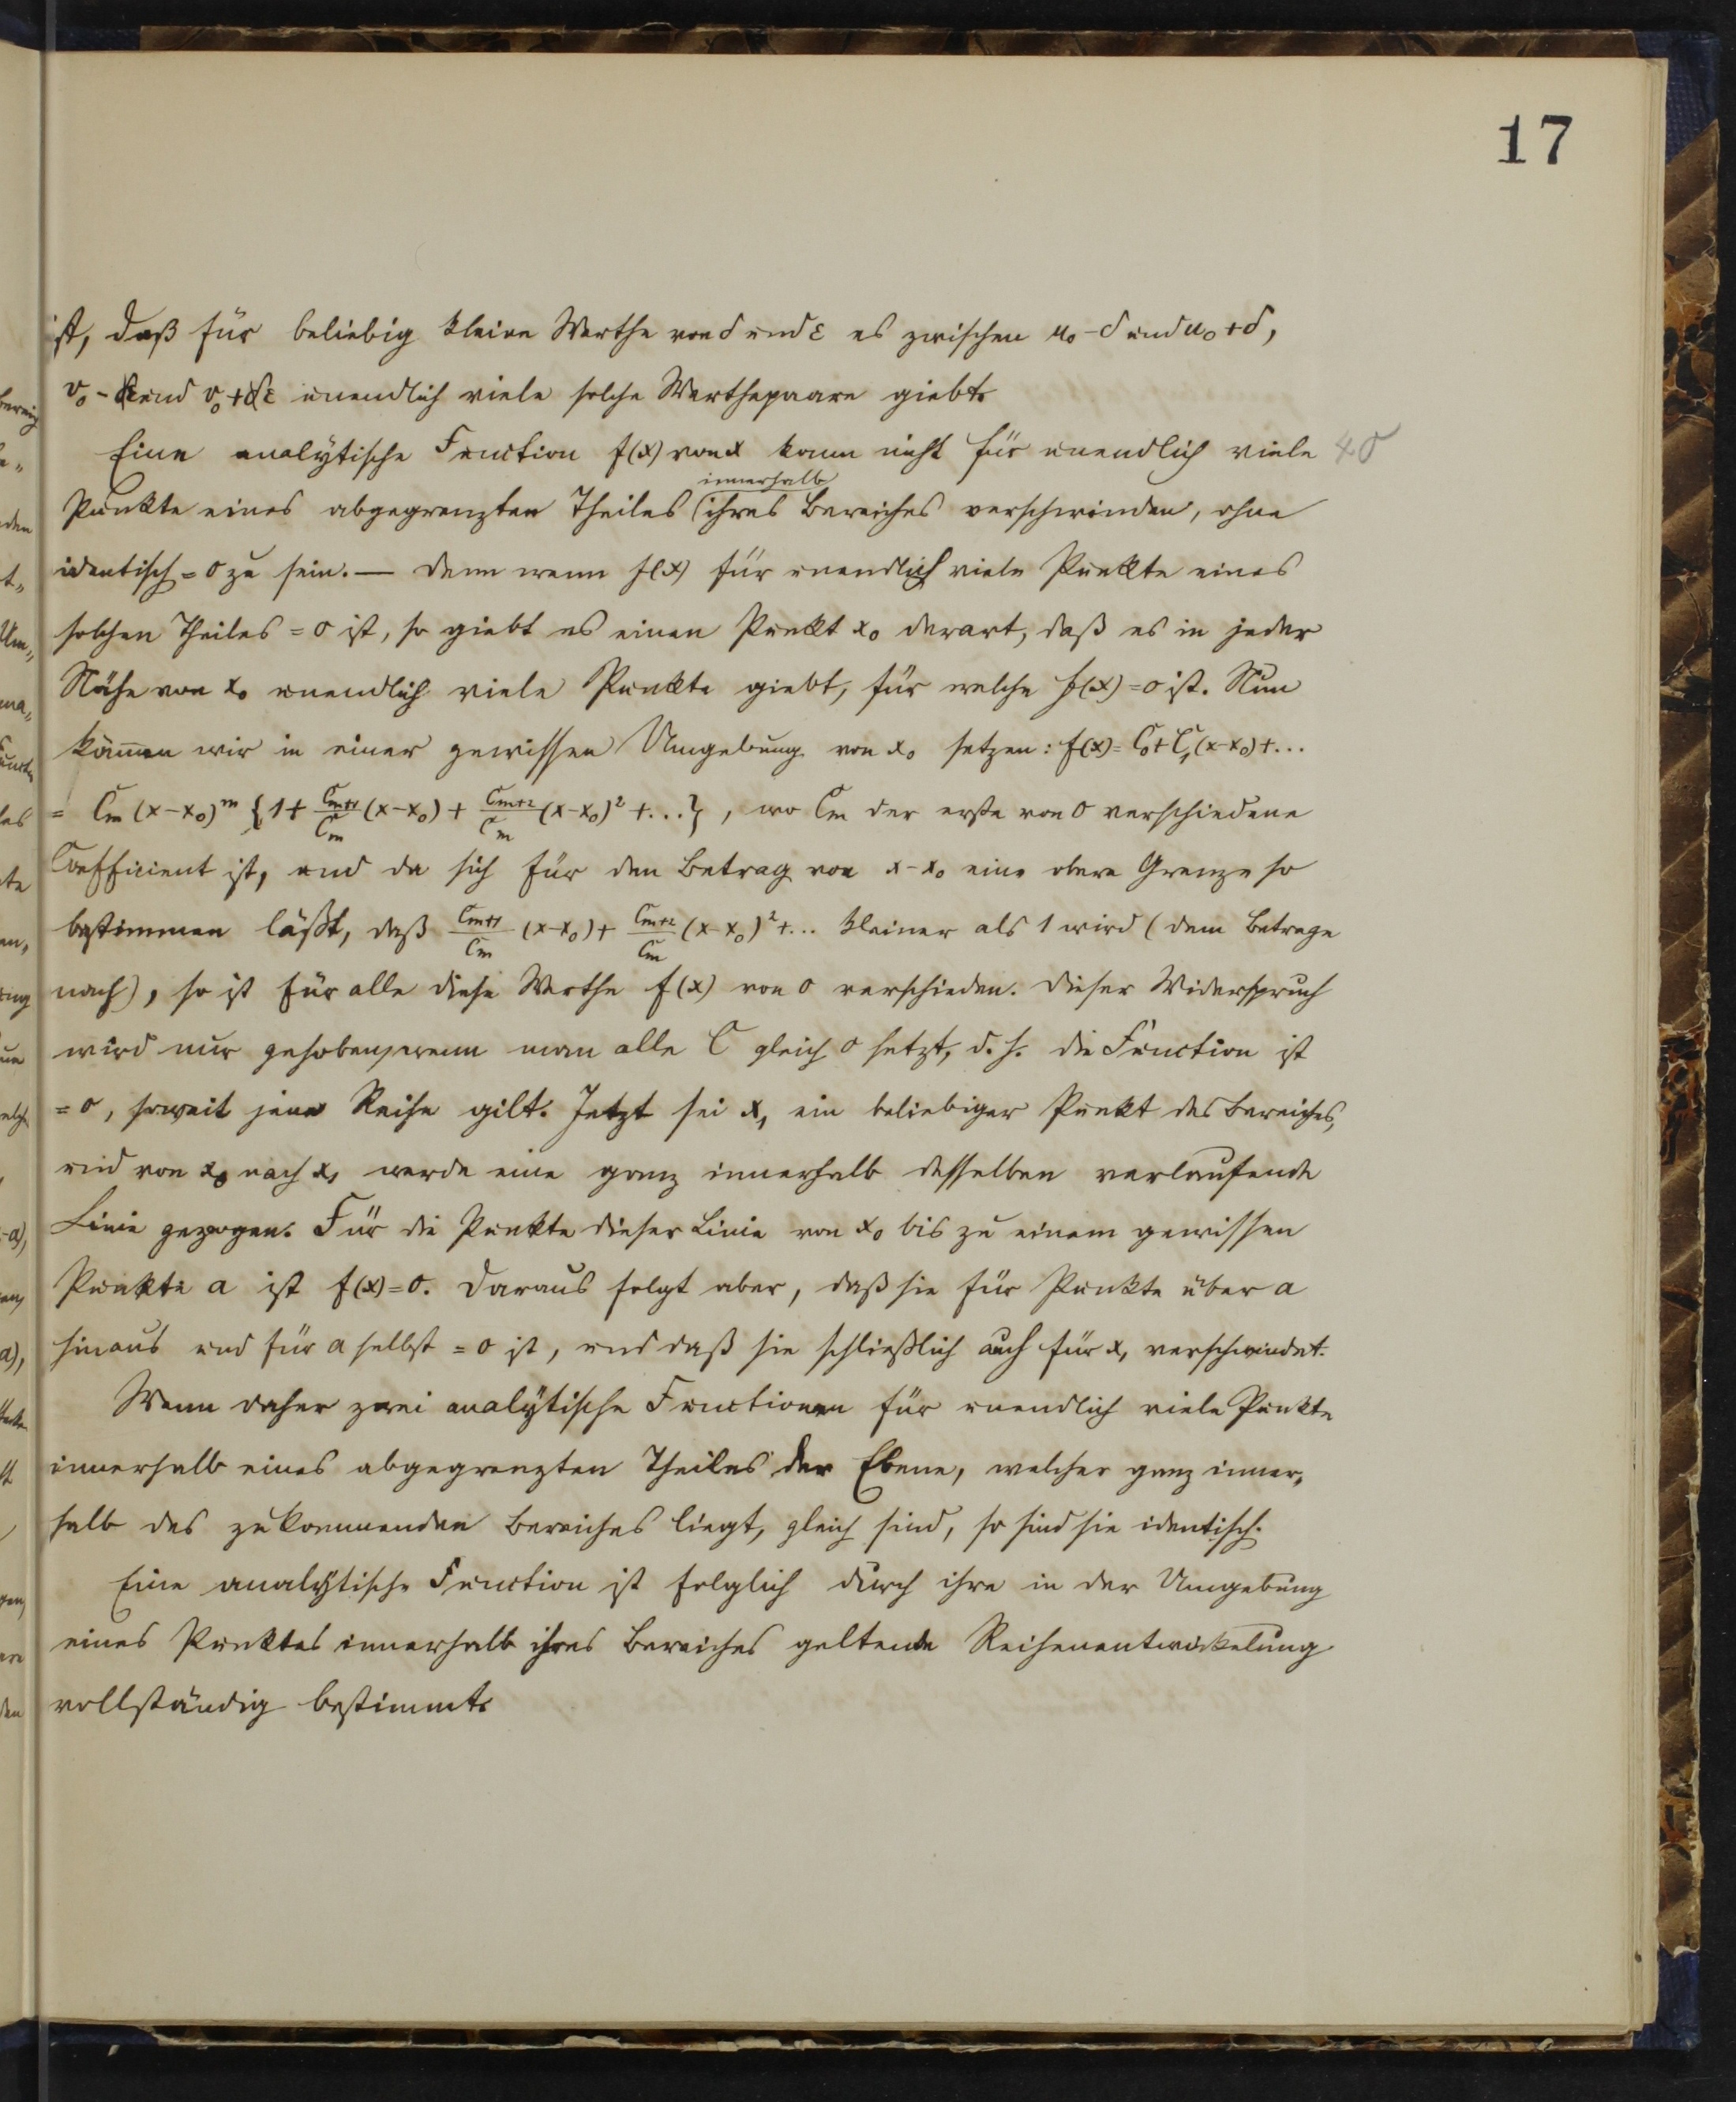 17
ist, daß für beliebig kleine Werthe von δ und ε es zwischen u₀-δ und u₀+δ,
v₀-ε und v₀+ε unendlich viele solche Werthepaare giebt.
Eine analytische Function f(x) von x kann nicht für unendlich viele
innerhalb
Punkte eines abgegrenzten Theiles ihres Bereiches verschwinden, ohne
identisch = 0 zu sein. — Denn wenn f(x) für unendlich viele Punkte eines
solchen Theiles = 0 ist, so giebt es einen Punkt x₀ derart, daß es in jeder
Nähe von x₀ unendlich viele Punkte giebt, für welche f(x) = 0 ist. Nun
können wir in einer gewissen Umgebung von x₀ setzen: f(x) = C₀+C₁(x-x₀)+...
= Cₘ(x-x₀)ᵐ {1 + Cₘ₊₁/Cₘ (x-x₀) + Cₘ₊₂/Cₘ (x-x₀)² + ...}, wo Cₘ der erste von 0 verschiedene
Coefficient ist, und da sich für den Betrag von x-x₀ eine obere Grenze so
bestimmen läßt, daß Cₘ₊₁/Cₘ (x-x₀) + Cₘ₊₂/Cₘ (x-x₀)² + ... kleiner als 1 wird (dem Betrage
nach), so ist für alle diese Werthe f(x) von 0 verschieden. Dieser Widerspruch
wird nur gehoben, wenn man alle C gleich 0 setzt, d. h. die Function ist
= 0, soweit jene Reihe gilt. Jetzt sei x₁ ein beliebiger Punkt des Bereiches,
und von x₀ nach x₁ werde eine ganz innerhalb desselben verlaufende
Linie gezogen. Für die Punkte dieser Linie von x₀ bis zu einem gewissen
Punkte a ist f(x) = 0. Daraus folgt aber, daß sie für Punkte über a
hinaus und für a selbst = 0 ist, und daß sie schließlich auch für x₁ verschwindet.
Wenn daher zwei analytische Functionen für unendlich viele Punkte
innerhalb eines abgegrenzten Theiles der Ebene, welcher ganz inner-
halb des zukommenden Bereiches liegt, gleich sind, so sind sie identisch.
Eine analytische Function ist folglich durch ihre in der Umgebung
eines Punktes innerhalb ihres Bereiches geltende Reihenentwickelung
vollständig bestimmt.